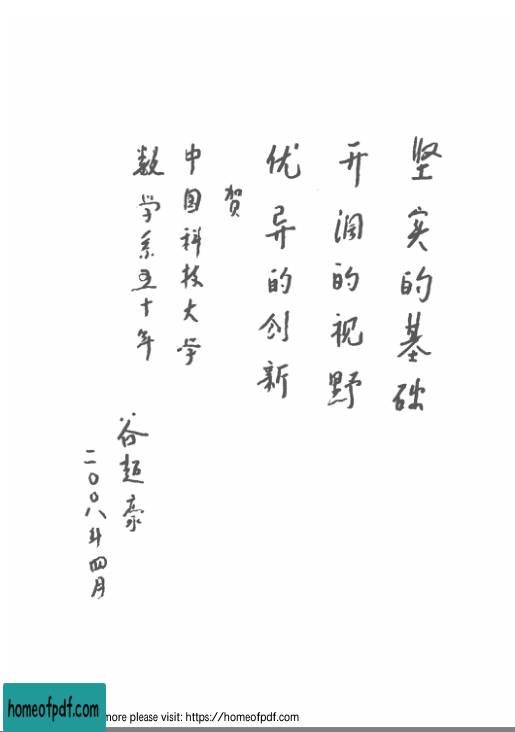 坚实的基础
开阔的视野
优异的创新
贺
中国科技大学
数学系五十年
谷超豪
二〇〇八年四月
homeofpdf.com
more please visit: https://homeofpdf.com